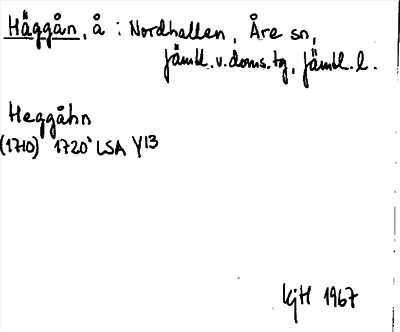 Häggån, å : Nordhallen, Åre sn,
Jämtl. v. doms. tg, Jämtl. l.
Heggåhn
(1710) 1720 LSA Y13
KjH 1967